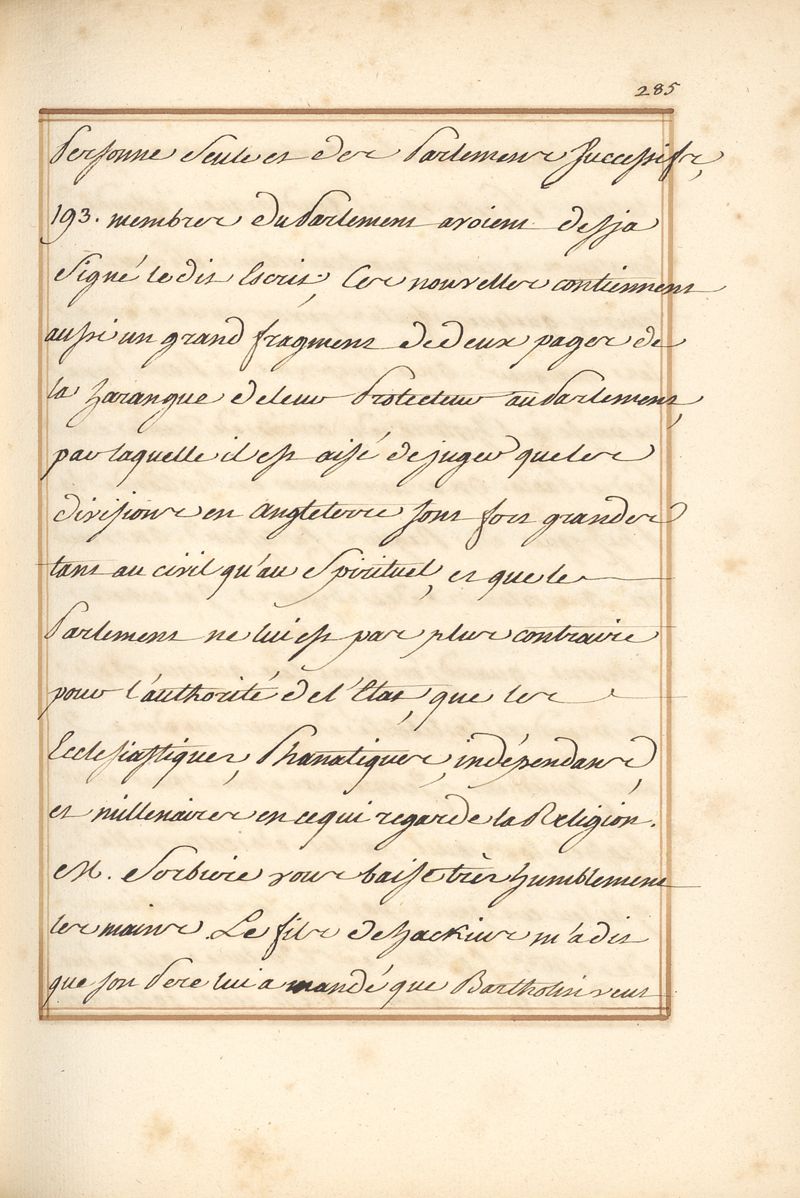 285
Personne seule et des Parlemens successifs,
193. membres du Parlement avoient desja
signé le dit Escrit, Ces nouvelles contiennent
aussi un grand fragment de deux pages de
la harangue de leur Protecteur au Parlement,
par laquelle il est aisé de juger que les
divisions en Angleterre sont fort grandes
tant au civil qu'au spirituel, et que le
Parlement ne lui est pas plus contraire
pour l'authorité de l'Etat, que les
Ecclesiastiques, Phanatiques, indépendans,
et millenaires en ce qui regarde la Religion.
M. Sorbiere vous baise très humblement
les mains. Le fils de hackius m'a dit
que son Pere lui a mandé que Bartholin veut